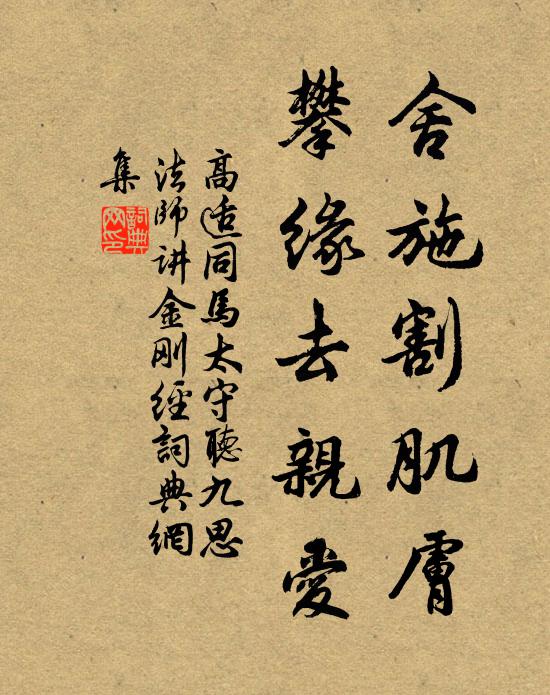 舍施割肌膚
攀緣去親愛
高适同馬太守聽九思
法師讲金刚經詞典網
集
詞典網印